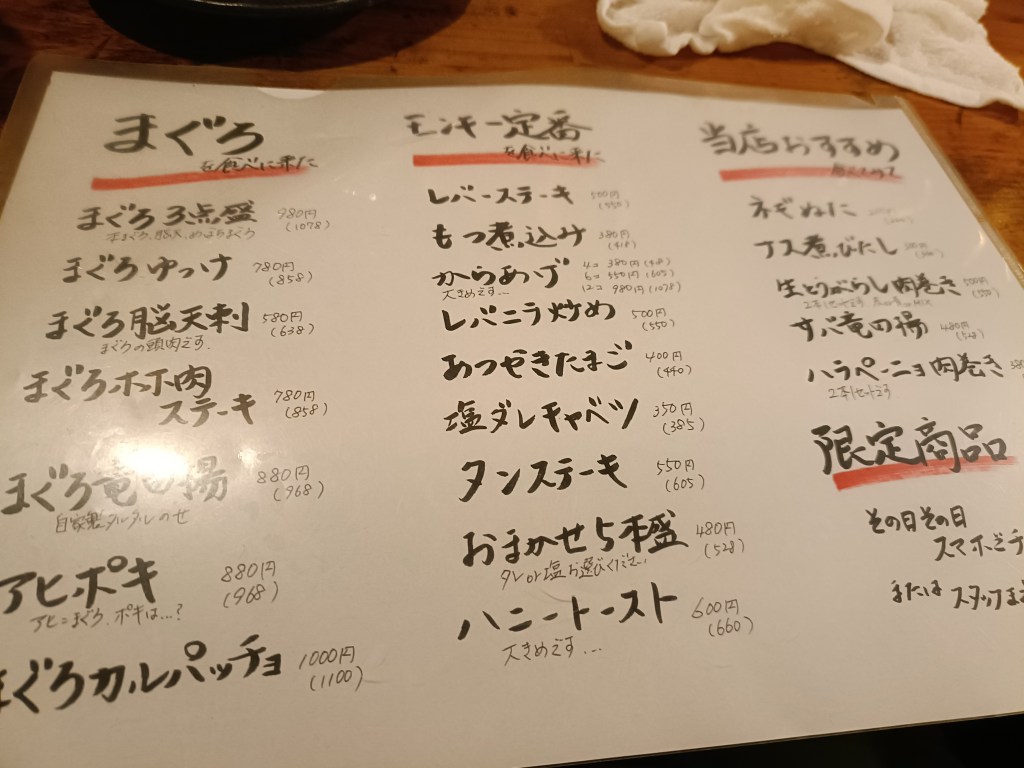 まぐろ
を食べに来た
まぐろ3点盛 980円
(1078)
まぐろゆっけ 780円
(858)
まぐろ脳天刺 580円
(638)
まぐろの頭肉です。
まぐろホホ肉
ステーキ 780円
(858)
まぐろ竜田揚 880円
(968)
自家製タルタルのせ
アヒポキ 880円
(968)
アヒ=まぐろ、ポキは…?
まぐろカルパッチョ 1000円
(1100)
モンキー定番
を食べに来た
レバーステーキ 500円
(550)
もつ煮込み 380円
(418)
からあげ 4コ 380円(418)
6コ 550円(605)
12コ 980円(1078)
大きめです…
レバニラ炒め 500円
(550)
あつやきたまご 400円
(440)
塩ダレキャベツ 350円
(385)
タンステーキ 550円
(605)
おまかせ5本盛 480円
(528)
タレor塩お選びください
ハニートースト 600円
(660)
大きめです…
当店おすすめ
ネギぬた
ナス煮びたし
生とうがらし肉巻き 500円
(550)
2本1セットです
サバ竜田揚 480円
(528)
ハラペーニョ肉巻き
2本1セットです
限定商品
その日その日
スマホでチ
または スタッフま